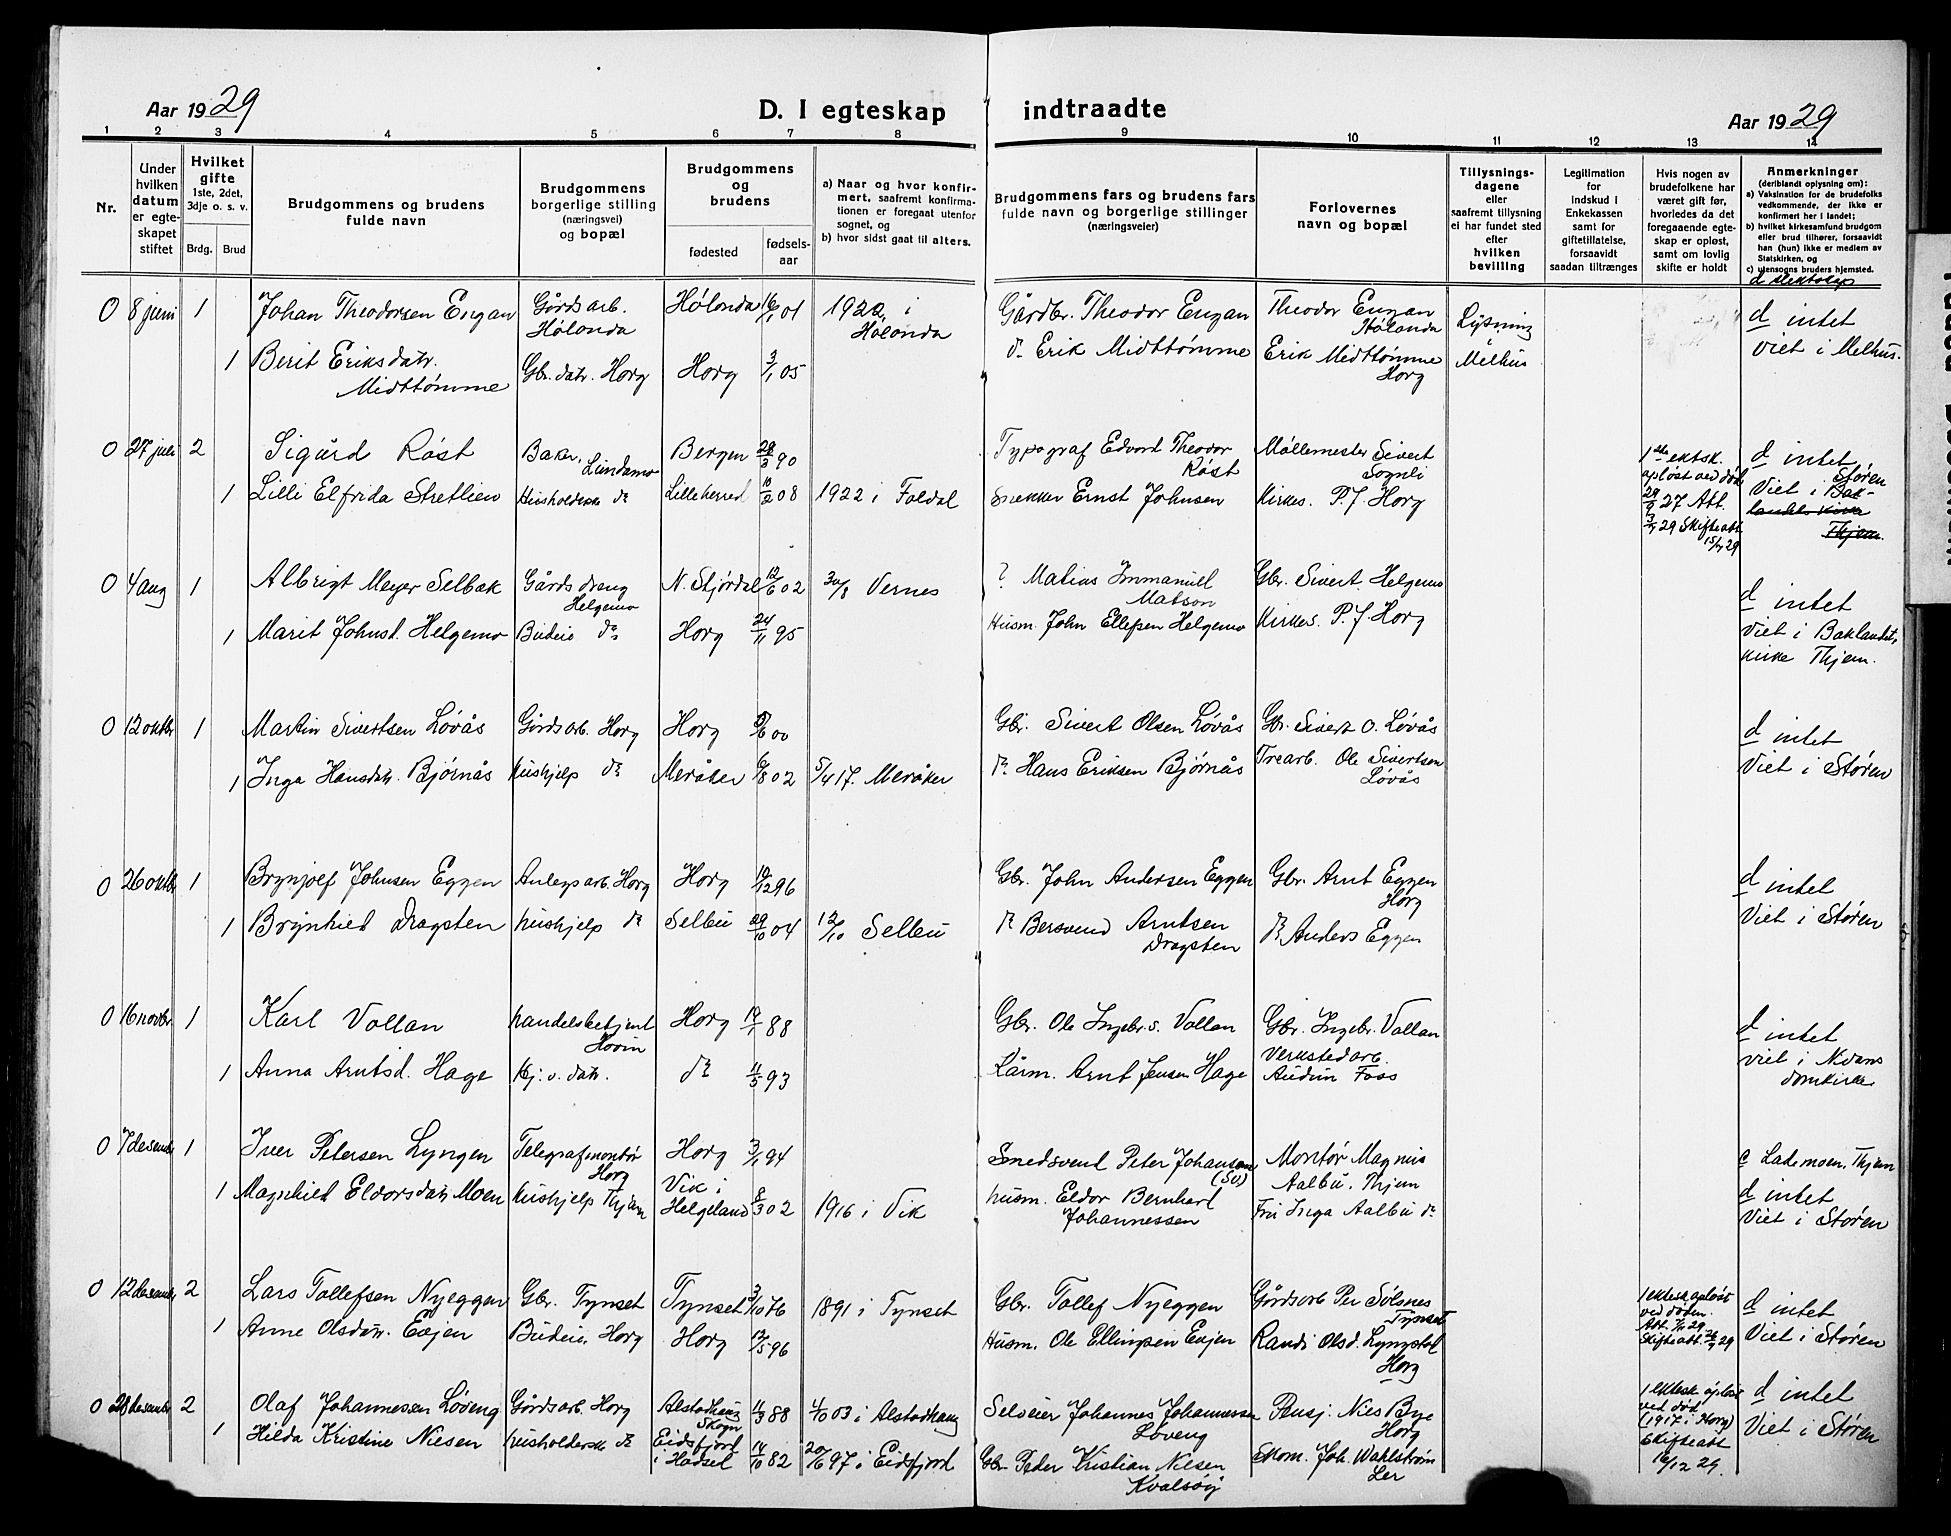 Aar 1929
D. I egteskap indtraadte
Aar 1929
1 2 3 4 5 6 7 8 9 10 11 12 13 14
Nr.
Under hvilken datum er egteskapet stiftet
Hvilket gifte
1ste, 2det, 3dje o. s. v.
Brdg. Brud
Brudgommens og brudens fulde navn
Brudgommens borgerlige stilling (næringsvei) og bopæl
Brudgommens og brudens
fødested
fødselsaar
a) Naar og hvor konfirmert, saafremt konfirmationen er foregaat utenfor sognet, og
b) hvor sidst gaat til alters.
Brudgommens fars og brudens fars fulde navn og borgerlige stillinger (næringsveier)
Forlovernes navn og bopæl
Tillysningsdagene eller saafremt tillysning ei har fundet sted efter hvilken bevilling
Legitimation for Indskud i Enkekassen samt for giftetillatelse, forsaavidt saadan tiltrænges
Hvis nogen av brudefolkene har været gift før, hvorledes da det foregaaende egteskap er opløst, samt om lovlig skifte er holdt
Anmerkninger
(deriblandt oplysning om):
a) Vaksination for de brudefolks vedkommende, der ikke er konfirmert her i landet;
b) hvilket kirkesamfund brudgom eller brud tilhører, forsaavidt han (hun) ikke er medlem av Statskirken, og
c) utensogns bruders hjemsted.
d slektskap
0 8 juni 1 Johan Theodorsen Engan Gårdsarb. Hølonda Hølonda 16/1 01 1922 i Hølonda Gårdbr. Theodor Engan Theodor Engan Hølonda Lysning d intet
1 Berit Eriksdatr. Midttømme Gbr. datr. Horg Horg 3/1 05 do Erik Midttømme Erik Midttømme Horg Melhus Viet i Melhus.
0 27 juli 2 Sigurd Røst Baker, Lundamo Bergen 28/3 90 Typograf Edvard Theodor Røst Møllemester Sivert Sognli 1ste ektsk. opløst ved død d intet
1 Lilli Elfrida Stretlien Husholderske do Lilleherred 10/2 08 1922 i Foldal Snekker Ernst Johnsen Kirkes. P. J. Horg 27 Att. 29 Skifteatt 15/7 29 Viet i Støren Baklandets kirke Thjem.
0 4 aug 1 Albrigt Meyer Selbak Gårdsdreng Helgemo N. Stjørdal 12/6 02 30/8 Vernes ? Matias Immanuel Matson Gbr. Sivert Helgemo d intet
1 Marit Johnsd. Helgemo Budeie do Horg 24/11 95 Husm. John Ellefsen Helgemo Kirkes. P. J. Horg Viet i Baklandets kirke Thjem.
0 12 oktbr 1 Martin Sivertsen Løvås Gårdsarb. Horg Horg 00 Gbr. Sivert Olsen Løvås Gbr. Sivert O. Løvås d intet
1 Inga Hansdatr. Bjørnås hushjelp do Meråker 6/8 02 5/4 17. Meråker do Hans Eriksen Bjørnås Trearb. Ole Sivertsen Løvås Viet i Støren
0 26 oktbr 1 Brynjolf Johnsen Eggen Anlegsarb. Horg Horg 10/12 96 Gbr. John Andersen Eggen Gbr. Arnt Eggen Horg d intet
1 Brynhild Dragsten hushjelp do Selbu 29/10 04 12/10 Selbu do Bersvend Arntsen Dragsten do Anders Eggen Viet i Støren
0 16 novbr 1 Karl Vollan handelsbetjent Hovin Horg 19/1 88 Gbr. Ole Ingebr.s. Vollan Gbr. Ingebr. Vollan d intet
1 Anna Arntsd. Hage Kj. v. datr. do 11/5 93 Lårm. Arnt Jensen Hage Verkstedarb. Audun Foss viet i Nidaros domkirke
0 7 desembr 1 Iver Petersen Lyngen Telegrafmontør Horg Horg 3/1 94 Smedsvend Peter Johansen (Sv) Montør Magnus Aalbu. Thjem c Lademoen, Thjem
1 Magnhild Eldorsdatr Moen hushjelp Thjem Vik i Helgeland 8/3 02 1916 i Vik husm. Eldor Bernhart Johannessen Fru Inga Aalbu do d intet Viet i Støren
0 12 desembr 2 Lars Tollefsen Nyeggen Gbr. Tynset Tynset 3/10 76 1891 i Tynset Gbr. Tollef Nyeggen Gårdsarb Per Sølsnes Tynset 1 ektesk opløst ved døden. Att. 29. Skifteatt. 29 d intet
1 Anne Olsdatr. Evjen Budeie, Horg Horg 12/5 96 Husm. Ole Ellingsen Evjen Randi Olsd. Horg Viet i Støren
0 28 desembr 2 Olaf Johannessen Løveng Gårdsarb. Horg Alstadhaug Skogn 11/3 88 4/10 03 i Alstadhaug Selveier Johannes Johannessen Løveng Pensj. Nils Bye Horg 1 ektesk opløst ved død (1917 i Horg) Skifteatt 16/12 29. d intet
1 Hilda Kristine Nilsen husholdersk do Eidsfjord i Hadsel 14/10 82 20/6 97 i Eidsfjord Gbr Peder Kristian Nilsen Kvalsøy Skom. Joh. Wahlstrøm Ler Viet i Støren